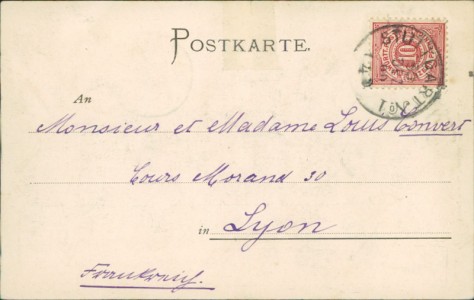 POSTKARTE.
STUTTGART
10
An
Monsieur et Madame Louis Convert
Cours Morand 30
in Lyon
Frankreich.